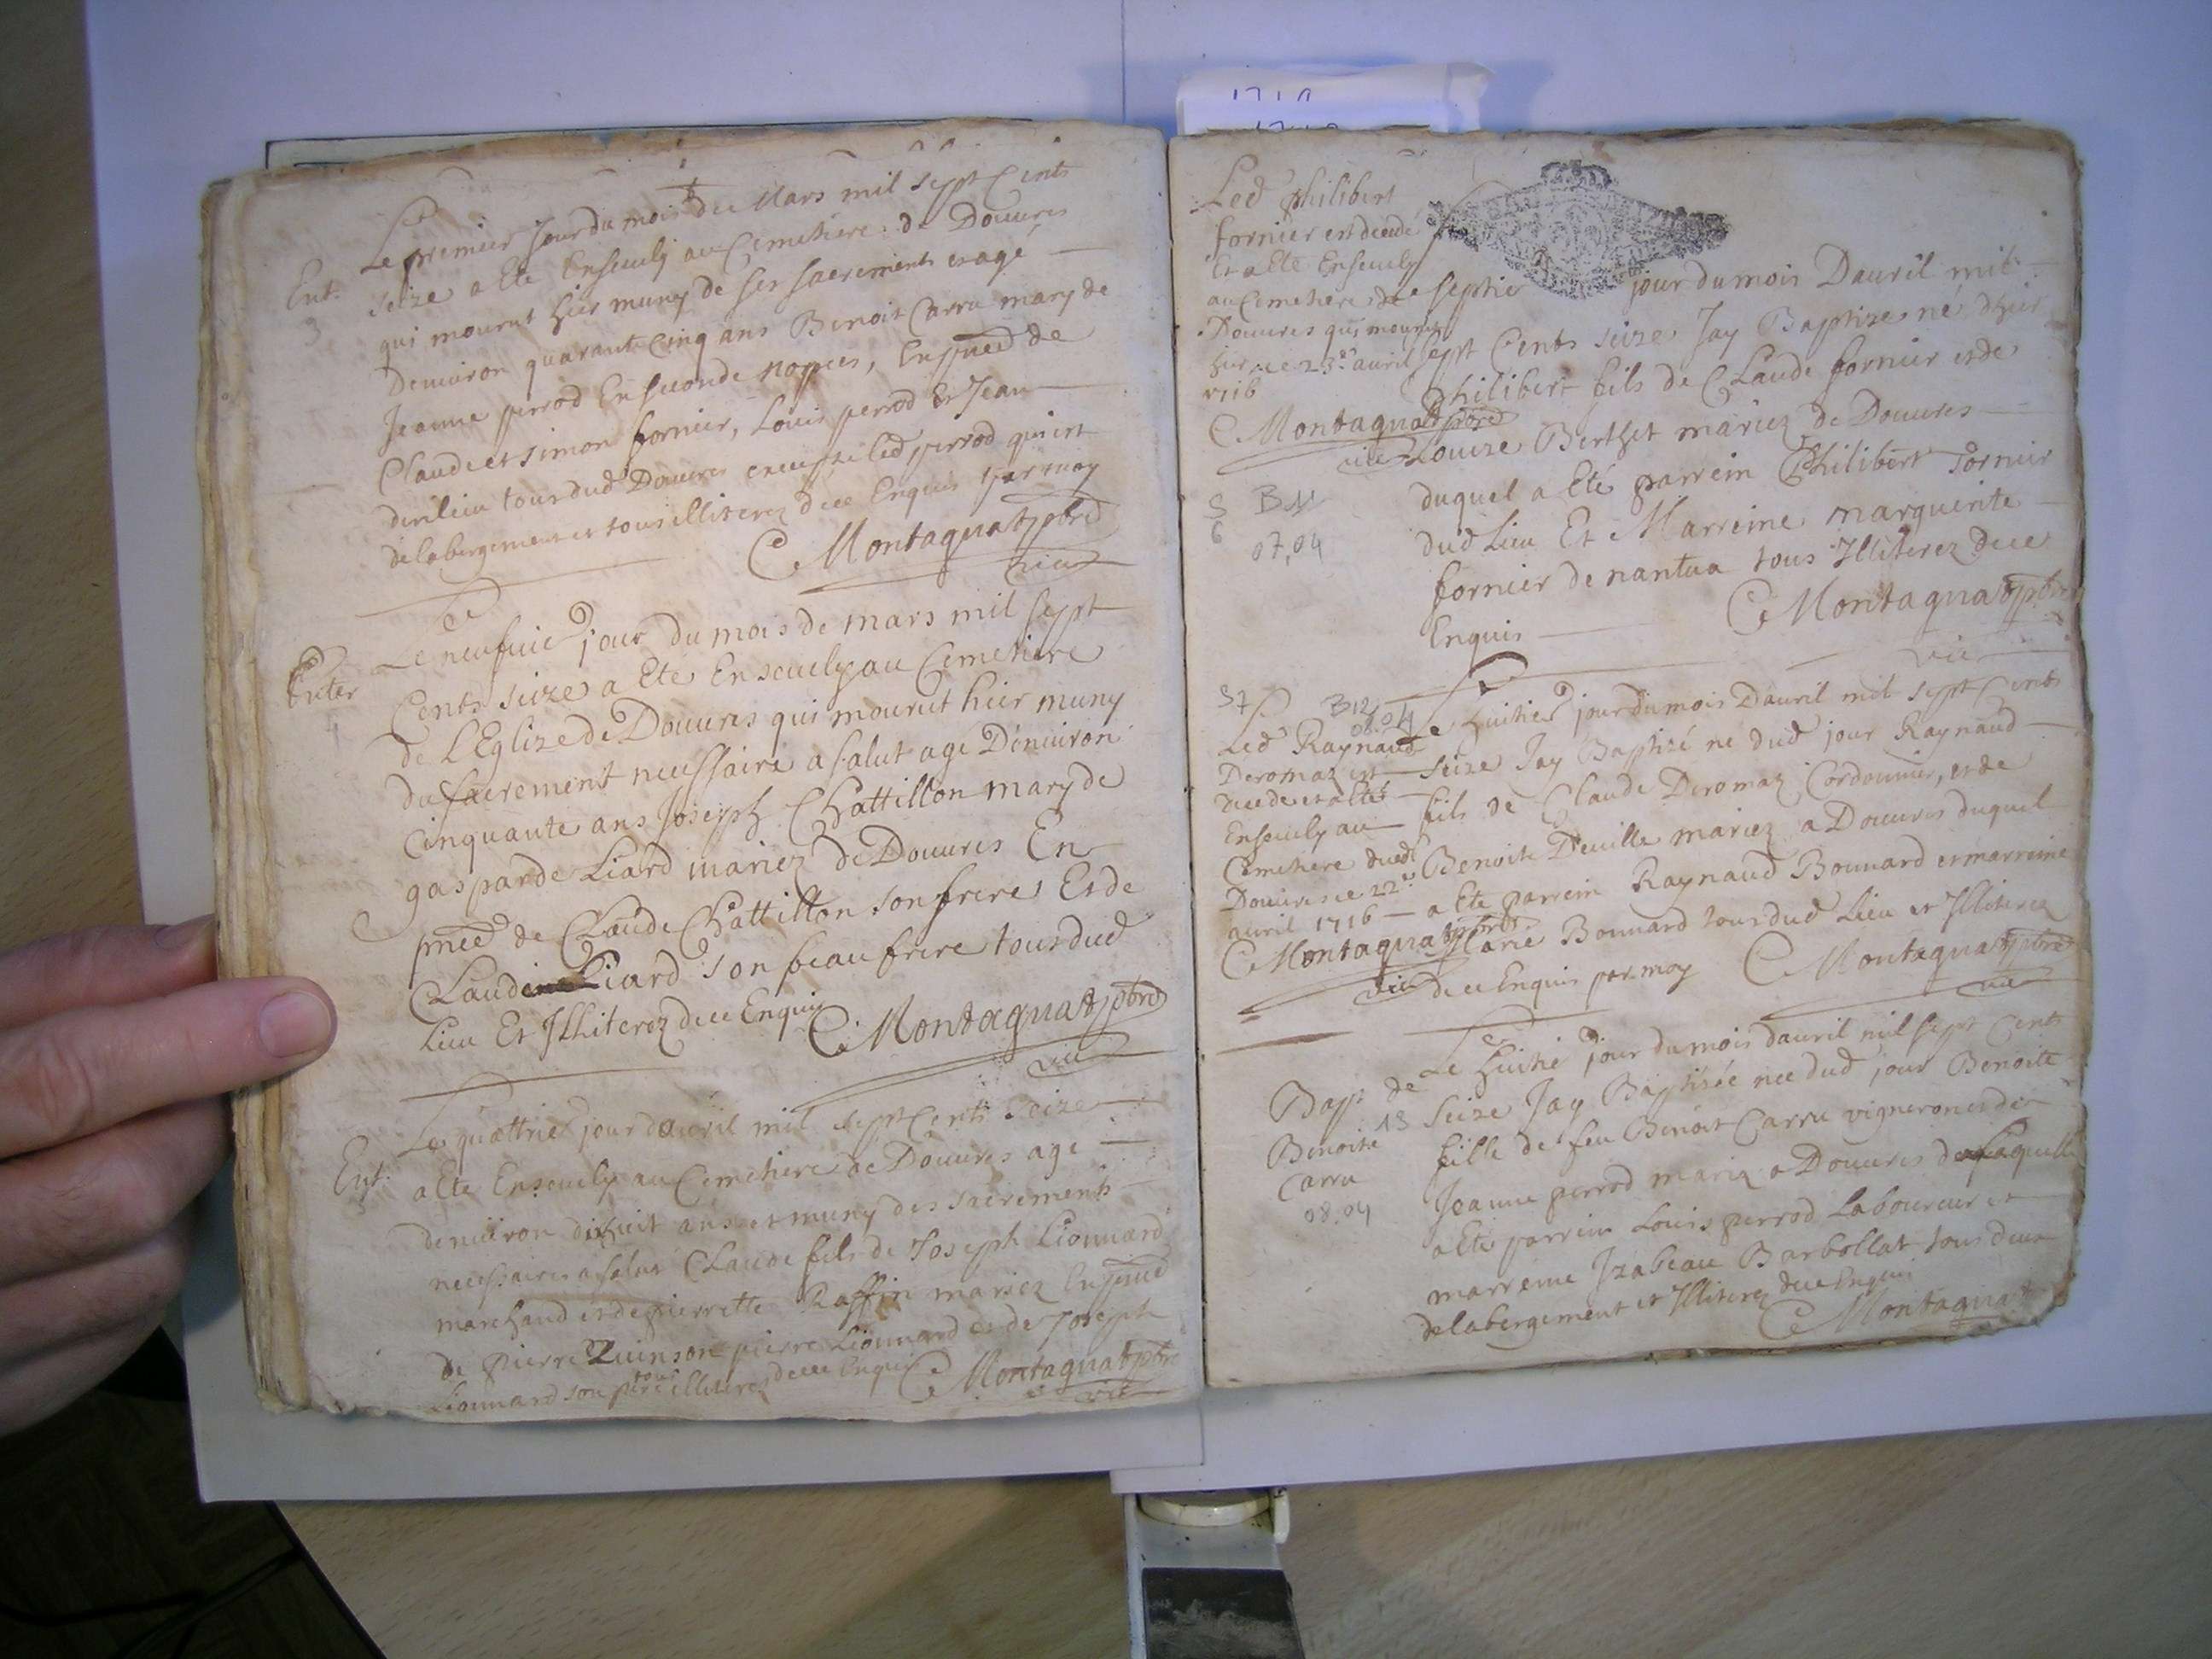 Ent.
3
Le premier Jour du mois de Mars mil sept Cents
seize a Ete Enseuely au Cemetiere de Douures
qui mourut hier muny de ses sacrements et agé
Denuiron quarant Cinq ans Benoit Carru mary de
Jeanne perrod En seconde nopces, En pñce de
Claude et simon fornier, Louis perrod Et Jean
tous dud Douures excepte led perrod qui est
de labergement et tous illiterez de ce Enquis par moy
C Montagnat pbre
vic
Enter
4
Le neufuie jour du mois de mars mil sept
Cents seize a Ete Enseuely au Cemetiere
de L'Eglize de Douures qui mourut hier muny
du sacrement necessaire a salut agé Denuiron
Cinquante ans Joseph Chattillon mary de
gasparde Liard mariez de Douures En
pñce de Claude Chattillon son frere Et de
Claude Liard son beau frere tous dud
Lieu Et Illiterez de ce Enquis
C Montagnat pbre
vic
Ent.
5
Le quattrie jour dauril mil sept Cents seize
a Ete Enseuely au Cemetiere de Douures age
denuiron dixhuit ans et muny des sacrements
necessaires a salut Claude fils de Joseph Lionnard
marchand et de pierrette Raffin mariez En pñce
de pierre Quinson pierre Lionnard et de Joseph
Lionnard son pere tous illiterez de ce Enquis C Montagnat pbre
vic
1710
Led philibert
fornier est decedé
Et a Ete Enseuely
au Cemetiere de
Douures qui mourut
hier ce 23e auril
1716
C Montagnat pbre
vic
S
6
B 11
07,04
Le septie jour du mois Dauril mil
sept Cents seize Jay Baptize né dhier
Philibert fils de Claude fornier et de
Louize Berthet mariez de Douures
duquel a Eté parrein Philibert fornier
dud Lieu Et Marreine marguerite
fornier de nantua tous Illiterez de ce
Enquis
C Montagnat pbre
vic
S7
B12
08.04
Led Raynaud
Deromaz est
decede et a Eté
Enseuely au
Cemetiere dud
Douures ce 22e
auril 1716
C Montagnat pbre
vic
Le huitie jour du mois Dauril mil sept Cents
seize Jay Baptizé ne dud jour Raynaud
fils de Claude Deromaz Cordonnier, et de
Benoite Deuille mariez a Douures duquel
a Ete parrein Raynaud Bonnard et marreine
Marie Bonnard tous dud Lieu et Illiterez
de ce Enquis par moy C Montagnat pbre
vic
Bapt de
Benoite
Carru
13
08.04
Le huitie jour du mois dauril mil sept Cents
seize Jay Baptizée nee dud jour Benoite
fille de feu Benoit Carru vigneron et de
Jeanne perrod mariez a Douures de laquelle
a Eté parrein Louis perrod Laboureur et
marreine Izabeau Barbollat tous deux
de labergement et Illiterez de ce Enquis
C Montagnat